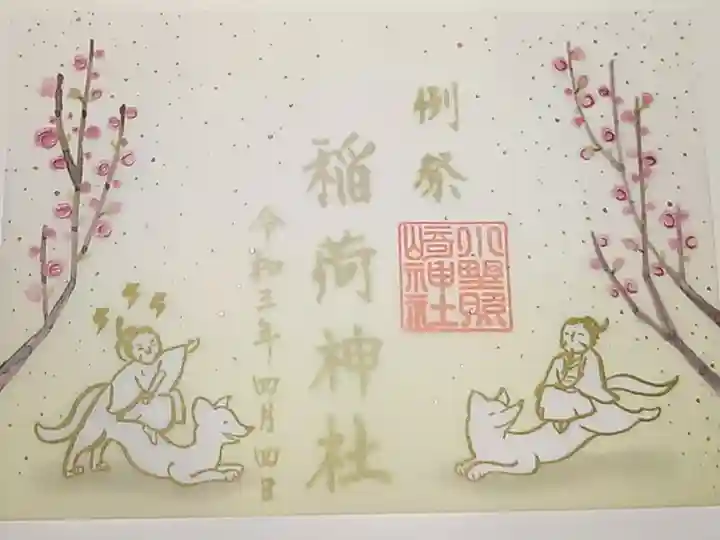 例祭
小野照
崎神社
稲荷神社
令和三年四月四日